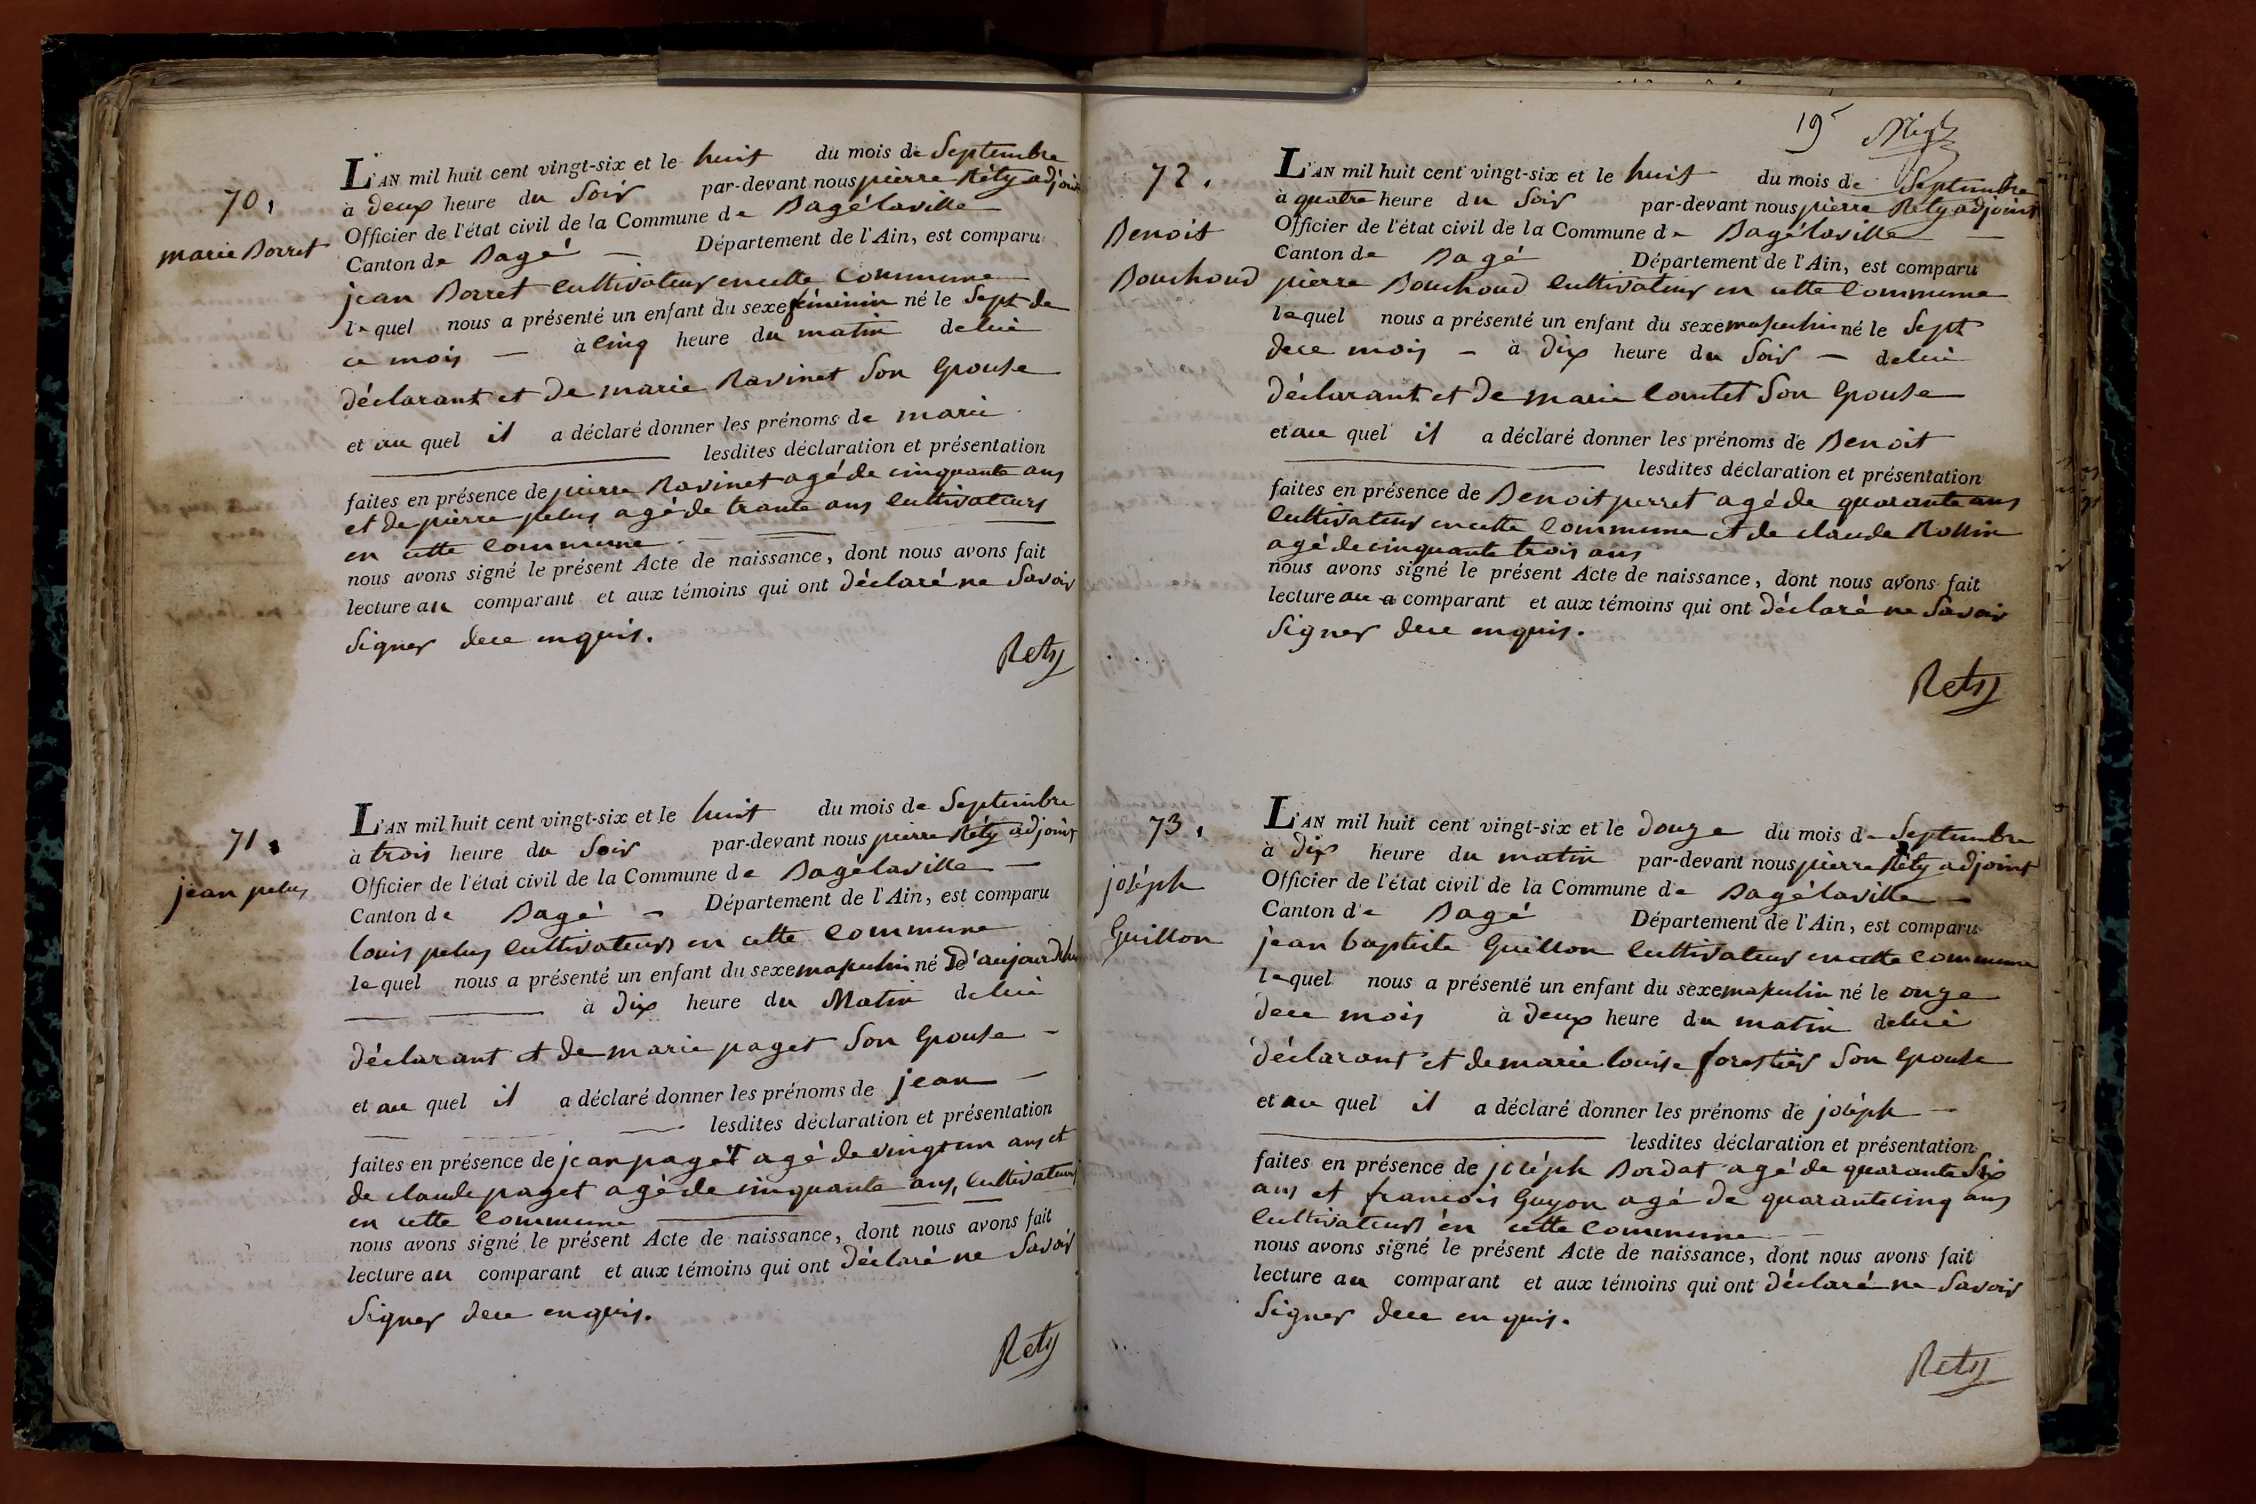 70.
marie Borret
L'AN mil huit cent vingt-six et le huit du mois de Septembre
à deux heure du Soir par-devant nous pierre Réty adjoint
Officier de l'état civil de la Commune de Bagélaville
Canton de Bagé — Département de l'Ain, est comparu
jean Borret cultivateur en cette Commune
lequel nous a présenté un enfant du sexe féminin né le Sept de
ce mois — à cinq heure du matin de lui
déclarant et de marie Ravinet Son Epouse
et au quel il a déclaré donner les prénoms de marie
lesdites déclaration et présentation
faites en présence de pierre Ravinet agé de cinquante ans
et de pierre pelus agé de trante ans cultivateurs
en cette commune
nous avons signé le présent Acte de naissance, dont nous avons fait
lecture au comparant et aux témoins qui ont déclaré ne Savoir
Signer dece enquis.
Rety
71.
jean pelus
L'AN mil huit cent vingt-six et le huit du mois de Septembre
à trois heure du Soir par-devant nous pierre Réty adjoint
Officier de l'état civil de la Commune de Bagélaville —
Canton de Bagé — Département de l'Ain, est comparu
louis pelus cultivateur en cette commune
lequel nous a présenté un enfant du sexe masculin né le d'aujourdhui
à dix heure du Matin de lui
déclarant et de marie paget Son Epouse —
et au quel il a déclaré donner les prénoms de jean —
lesdites déclaration et présentation
faites en présence de jean paget agé de vingt un ans et
de claude paget agé de cinquante ans, cultivateurs
en cette commune
nous avons signé le présent Acte de naissance, dont nous avons fait
lecture au comparant et aux témoins qui ont déclaré ne Savoir
Signer dece enquis.
Rety
19
72.
Benoit
Bouchoud
L'AN mil huit cent vingt-six et le huit du mois de Septembre
à quatre heure du Soir par-devant nous pierre Réty adjoint
Officier de l'état civil de la Commune de Bagélaville —
Canton de Bagé Département de l'Ain, est comparu
pierre Bouchoud cultivateur en cette Commune
lequel nous a présenté un enfant du sexe masculin né le Sept
dece mois — à dix heure du Soir — de lui
déclarant et de marie Comtet Son Epouse
et au quel il a déclaré donner les prénoms de Benoit
lesdites déclaration et présentation
faites en présence de Benoit perret agé de quarante ans
cultivateur en cette Commune et de claude Rollin
agé de cinquante trois ans
nous avons signé le présent Acte de naissance, dont nous avons fait
lecture au comparant et aux témoins qui ont déclaré ne Savoir
Signer dece enquis.
Rety
73.
joséph
Guillon
L'AN mil huit cent vingt-six et le douze du mois de Septembre
à dix heure du matin par-devant nous pierre Réty adjoint
Officier de l'état civil de la Commune de Bagélaville —
Canton de Bagé Département de l'Ain, est comparu
jean baptiste Guillon cultivateur en cette commune
lequel nous a présenté un enfant du sexe masculin né le onze
dece mois à deux heure du matin de lui
déclarant et de marie louise forestier Son Epouse
et au quel il a déclaré donner les prénoms de joséph —
lesdites déclaration et présentation
faites en présence de joséph Bordat agé de quarante Six
ans et francois Guyon agé de quarante cinq ans
cultivateurs en cette commune
nous avons signé le présent Acte de naissance, dont nous avons fait
lecture au comparant et aux témoins qui ont déclaré ne Savoir
Signer dece enquis.
Rety